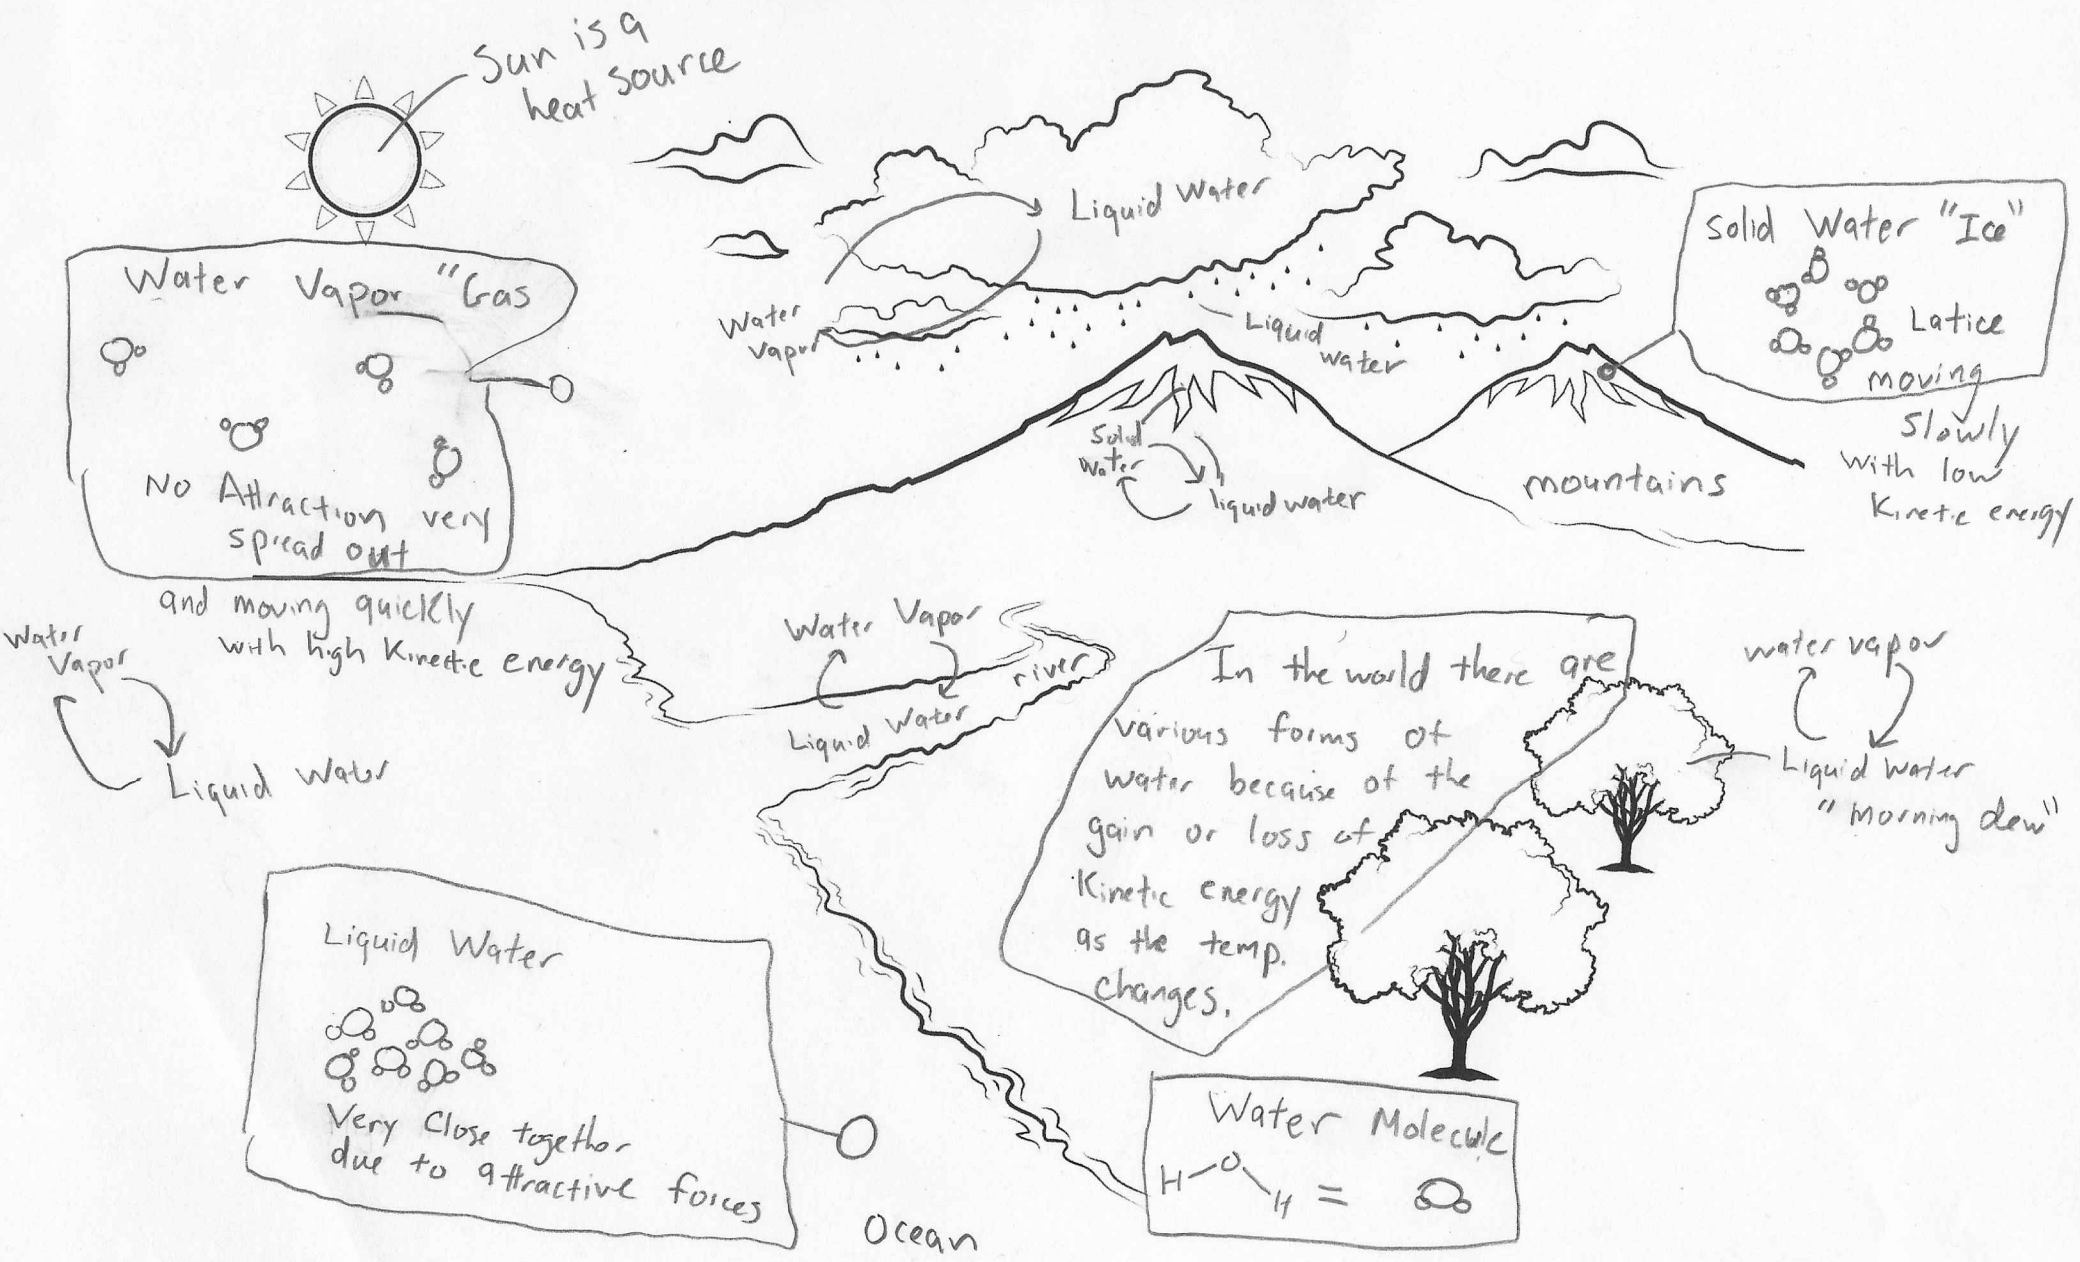 Sun is a
heat source
Water Vapor "Gas
No Attraction very
spread out
and moving quickly
with high Kinetic energy
Water
Vapor
Liquid Water
Liquid Water
Water
Vapor
Liquid
Water
Solid
Water
liquid water
mountains
Solid Water "Ice"
Latice
moving
slowly
with low
Kinetic energy
Water Vapor
Liquid Water
river
In the world there are
various forms of
water because of the
gain or loss of
Kinetic energy
as the temp.
changes.
water vapor
Liquid Water
"morning dew"
Liquid Water
Very Close together
due to attractive forces
Ocean
Water Molecule
H-O-H =